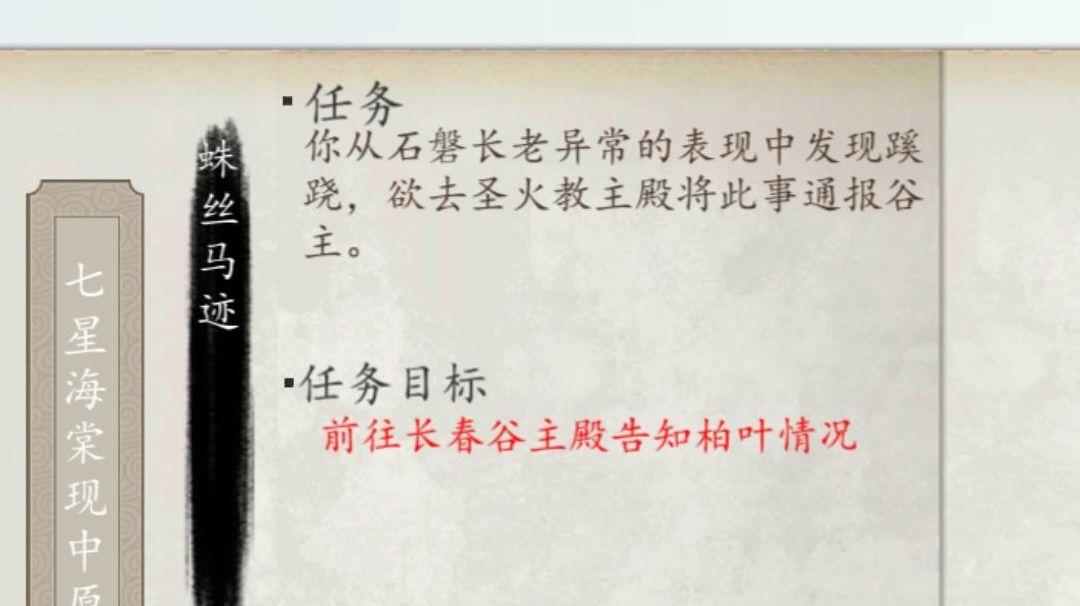 任务
你从石磐长老异常的表现中发现蹊
跷，欲去圣火教主殿将此事通报谷
主。
任务目标
前往长春谷主殿告知柏叶情况
蛛丝马迹
七星海棠现中原